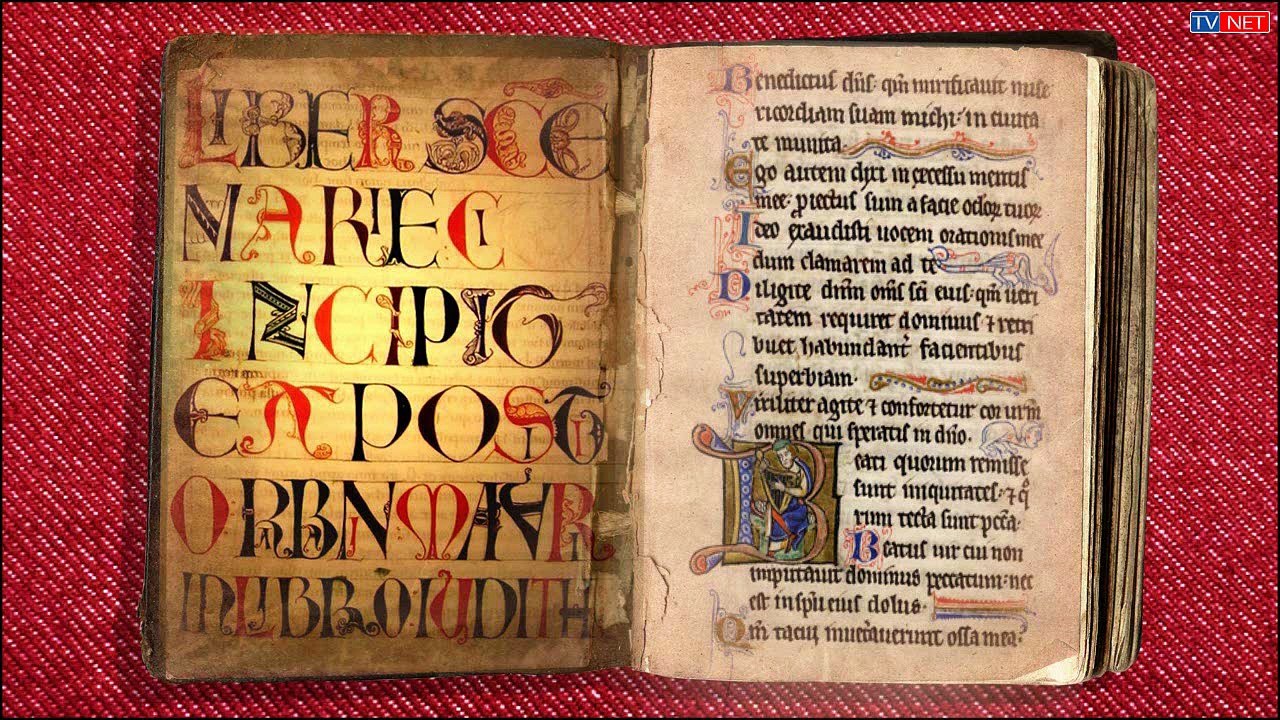 LIBER SCE
MARIE CI
INCIPIT
EXPOSITI
O RABANI MAVR
IN LIBRO IUDITH
Benedictus dñs qm̃ mirificauit mise
ricordiam suam michi in ciuita
te munita
Ego autem dixi in excessu mentis
mee proiectus sum a facie oculor̃ tuor̃
Ideo exaudisti uocem orationis mee
dum clamarem ad te
Diligite dñm om̃s sc̃i eius qm̃ ueri
tatem requiret dominus ⁊ retri
buet habundant̃ facientibus
superbiam
Viriliter agite ⁊ confortetur cor ur̃m
omnes qui speratis in dño
Beati quorum remisse
sunt iniquitates ⁊ q̃
rum tecta sunt pecc̃a
Beatus uir cui non
imputauit dominus peccatum nec
est in sp̃u eius dolus
Qm̃ tacui inueterauerunt ossa mea
TV NET